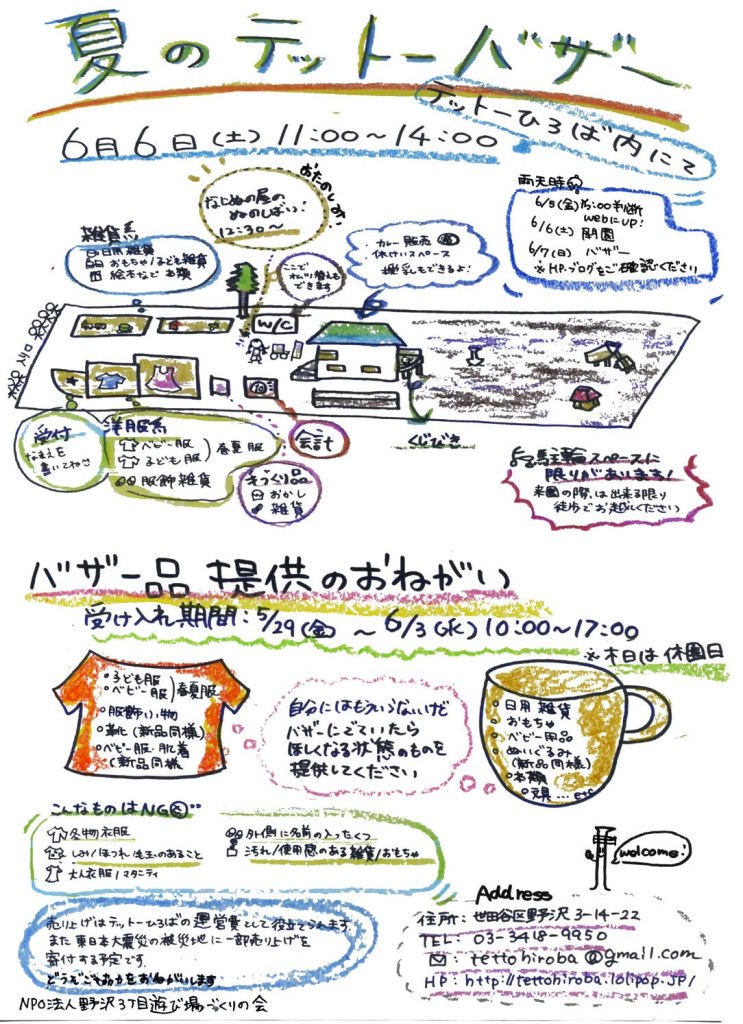 夏のテットーバザー
テットーひろば内にて
6月6日(土) 11:00～14:00
雨天時
6/5(金)15:00判断
webにUP!
6/6(土) 閉園
6/7(日) バザー
※HP・ブログをご確認ください
おたのしみ
なじみの屋の
ぬのしばい!
12:30～
雑貨系
日用雑貨
おもちゃ/子ども雑貨
絵本など本類
ここで
できます
カレー販売
休けいスペース
授乳もできるよ!
W/C
受付
なまえを
書いてね
洋服系
ベビー服
子ども服
春夏服
服飾雑貨
会計
手づくり品
おかし
雑貨
くじびき
駐輪スペースに
限りがあります!
来園の際は出来る限り
徒歩でお越しください
バザー品提供のおねがい
受け入れ期間:5/29(金)～6/3(水)10:00～17:00
※木日は休園日
子ども服
ベビー服
春夏服
服飾小物
革化(新品同様)
ベビー服・肌着
(新品同様
自分にはもういらないけど
バザーにでていたら
ほしくなる状態のものを
提供してください
日用雑貨
おもちゃ
ベビー用品
ぬいぐるみ
(新品同様)
本類
文具...etc
こんなものはNG
冬物衣服
しみ/ほつれ/毛玉のあること
大人衣服/マタニティ
外側に名前の入ったくつ
汚れ/使用感のある雑貨/おもちゃ
welcome!
売り上げはテットーひろばの運営費として役立てられます
また東日本大震災の被災地に一部売り上げを
寄付する予定です
どうぞご協力をおねがいします
NPO法人野沢3丁目遊び場づくりの会
Address
住所:世田谷区野沢3-14-22
TEL:03-3418-9950
tettohiroba@gmail.com
HP:http://tettohiroba.lolipop.jp/